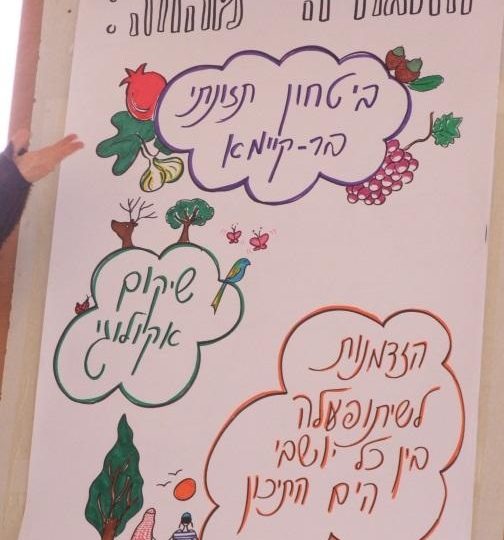 ביטחון תזונתי
בר-קיימא
שיקום
אקולוגי
הזדמנות
לשיתופעלה
בין כל יושבי
הים התיכון